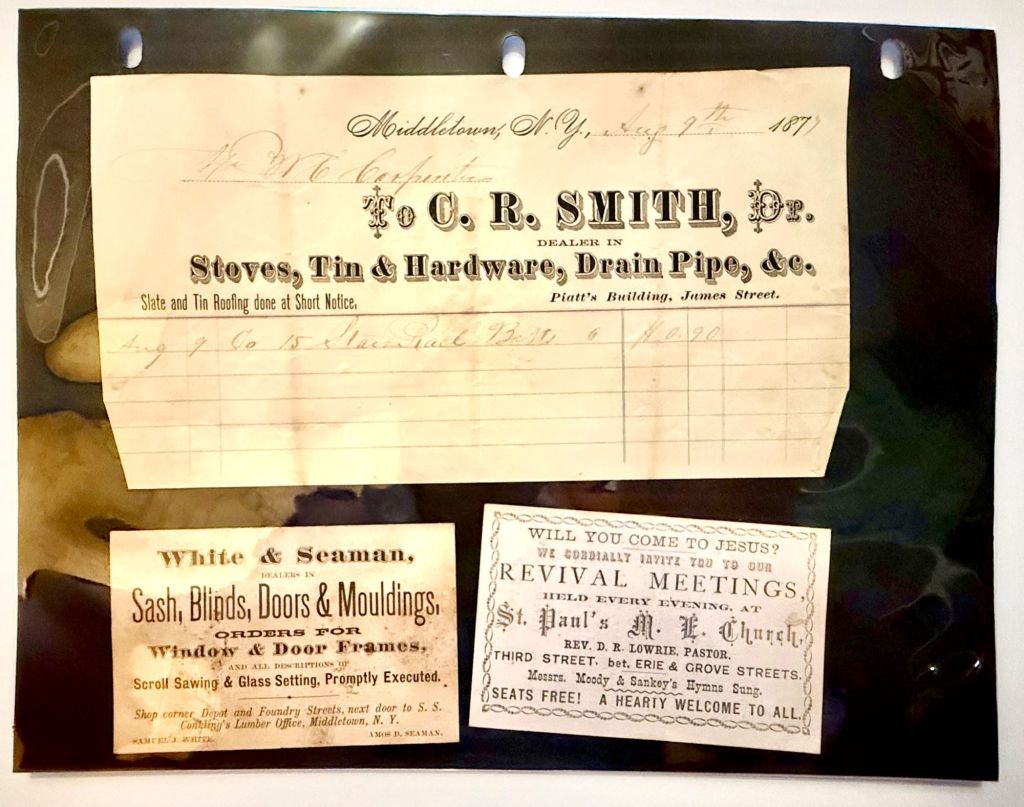 Middletown, N. Y., Aug 9th 1877
Mr W C Carpenter
To C. R. SMITH, Dr.
DEALER IN
Stoves, Tin & Hardware, Drain Pipe, &c.
Slate and Tin Roofing done at Short Notice, Piatt's Building, James Street.
Aug 9 To 15 Stair Rail Bolts 6 0.90
White & Seaman,
DEALERS IN
Sash, Blinds, Doors & Mouldings.
ORDERS FOR
Window & Door Frames,
AND ALL DESCRIPTIONS OF
Scroll Sawing & Glass Setting, Promptly Executed.
Shop corner Depot and Foundry Streets, next door to S. S.
Conkling's Lumber Office, Middletown, N. Y.
SAMUEL J. WHITE. AMOS D. SEAMAN.
WILL YOU COME TO JESUS?
WE CORDIALLY INVITE YOU TO OUR
REVIVAL MEETINGS,
HELD EVERY EVENING, AT
St. Paul's M. E. Church,
REV. D. R. LOWRIE, PASTOR.
THIRD STREET, bet. ERIE & GROVE STREETS.
Messrs. Moody & Sankey's Hymns Sung.
SEATS FREE! A HEARTY WELCOME TO ALL.